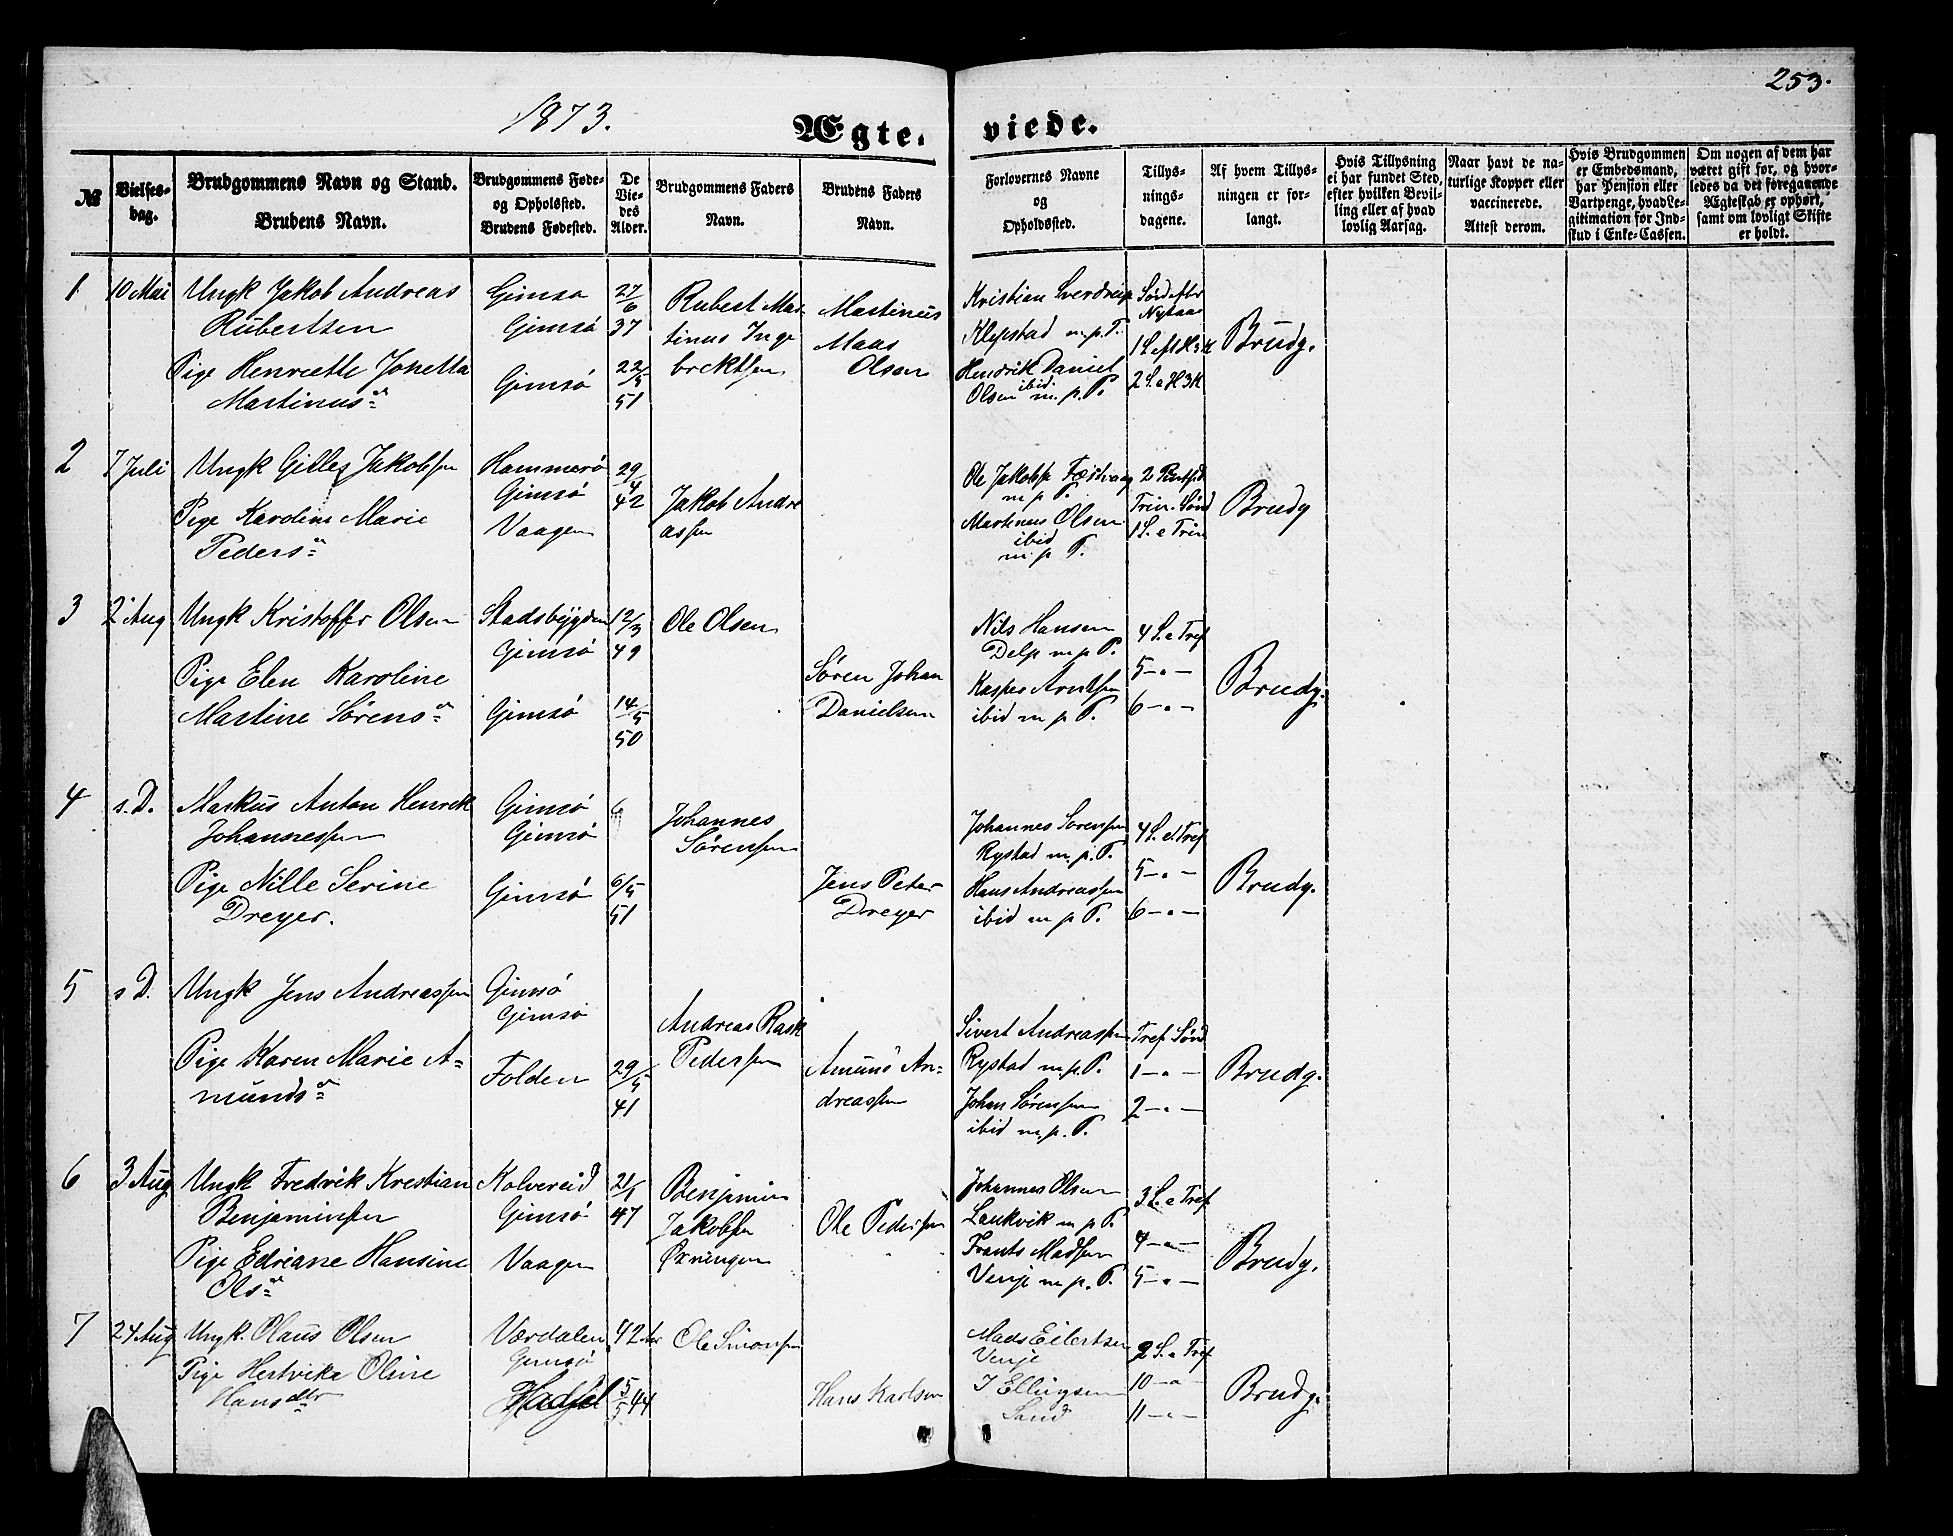 253.
1873.
Ægte. viede.
№
Vielses-
dag.
Brudgommens Navn og Stand.
Brudens Navn.
Brudgommens Føde-
og Opholsted.
Brudens Fødested.
De
Vie-
des
Alder.
Brudgommens Faders
Navn.
Brudens Faders
Navn.
Forlovernes Navne
og
Opholdssted.
Tillys-
nings-
dagene.
Af hvem Tillys-
ningen er for-
langt.
Hvis Tillysning
ei har fundet Sted,
efter hvilken Bevil-
ling eller af hvad
lovlig Aarsag.
Naar havt de na-
turlige Kopper eller
vaccinerede.
Attest derom.
Hvis Brudgommen
er Embedsmand,
har Pension eller
Vartpenge, hvad Le-
gitimation for Ind-
skud i Enke-Cassen.
Om nogen af dem har
været gift før, og hvor-
ledes da det foregaaende
Ægteskab er ophørt,
samt om lovligt Skifte
er holdt.
1
10 Mai
Ungk Jakob Andreas
Rubertsen
Pige Henriette Jonetta
Martinusdr
Gimsø
Gimsø
Gimsø
27/6
37
22/5
51
Rubert Mar
tinus Inge
brektsen
Martinus
Maas
Olsen
Kristian Sverdrup
Klepstad m.p.P.
Hendrik Daniel
Olsen ibid. m.p.P.
Sønd efter
Nytaar
1 S. eft H 3 K
2 S. e H 3 K
Brudg.
2
7 Juli
Ungk Gilles Jakobsen
Pige Karoline Marie
Pedersdr
Hammerø
Gimsø
Vaagen
29/4
42
Jakob Andre
assen
Ole Jakobsen Festvaag
m p P.
Martinus Olsen
ibid
m. p P.
Trin. Sønd
1 S. e Trin
Brudg
3
2 Aug
Ungk Kristoffer Olsen
Pige Elen Karoline
Martine Sørensdr
Stadsbygden
Gimsø
Gimsø
12/3
49
14/5
50
Ole Olsen
Søren Johan
Danielsen
Nils Hansen
Delp m p P.
Kasper Arntsen
ibid m p P.
4 S. e Tref
5 -"-
6 -"-
Brudg.
4
s. D.
Markus Anton Henrek
Johannessen
Pige Nille Serine
Dreyer.
Gimsø
Gimsø
Gimsø
6
6/5
51
Johannes
Sørensen
Jens Peter
Dreyer
Johannes Sørensen
Rystad m. p. P.
Hans Andreassen
ibid m p P.
4 S. e. Tref
5 -"-
6 -"-
Brudg.
5
s D.
Ungk Jens Andreassen
Pige Karen Marie A-
mundsdr
Gimsø
Gimsø
Folden
29/5
41
Andreas Rask
Pedersen
Amund An-
dreassen
Sivert Andreassen
Rystad m.p.P.
Johan Sørensen
ibid m. p. P.
Tref Sønd
1 -"-
2 -"-
Brudg.
6
3 Aug
Ungk Fredrik Krestian
Benjaminsen
Pige Edriane Hansine
Olsdr
Kolvereid
Gimsø
Vaagen
21/1
47
Benjamin
Jakobsen
Ørningen
Ole Pedersen
Johannes Olsen
Laukvik m p P.
Frants Madsen
Venje m. p. P.
3 S. e Tref
4 -"-
5 -"-
Brudg.
7
24 Aug
Ungk. Olaus Olsen
Pige Hertvika Olsine
Hansdtr
Værdalen
Gimsø
Hadsel
42 Aar
5/5 44
Ole Simonsen
Hans Karlsen
Mads Eilertsen
Venje
J Ellingsen
Sand
9 S. e Tref
10 -"-
11 -"-
Brudg.